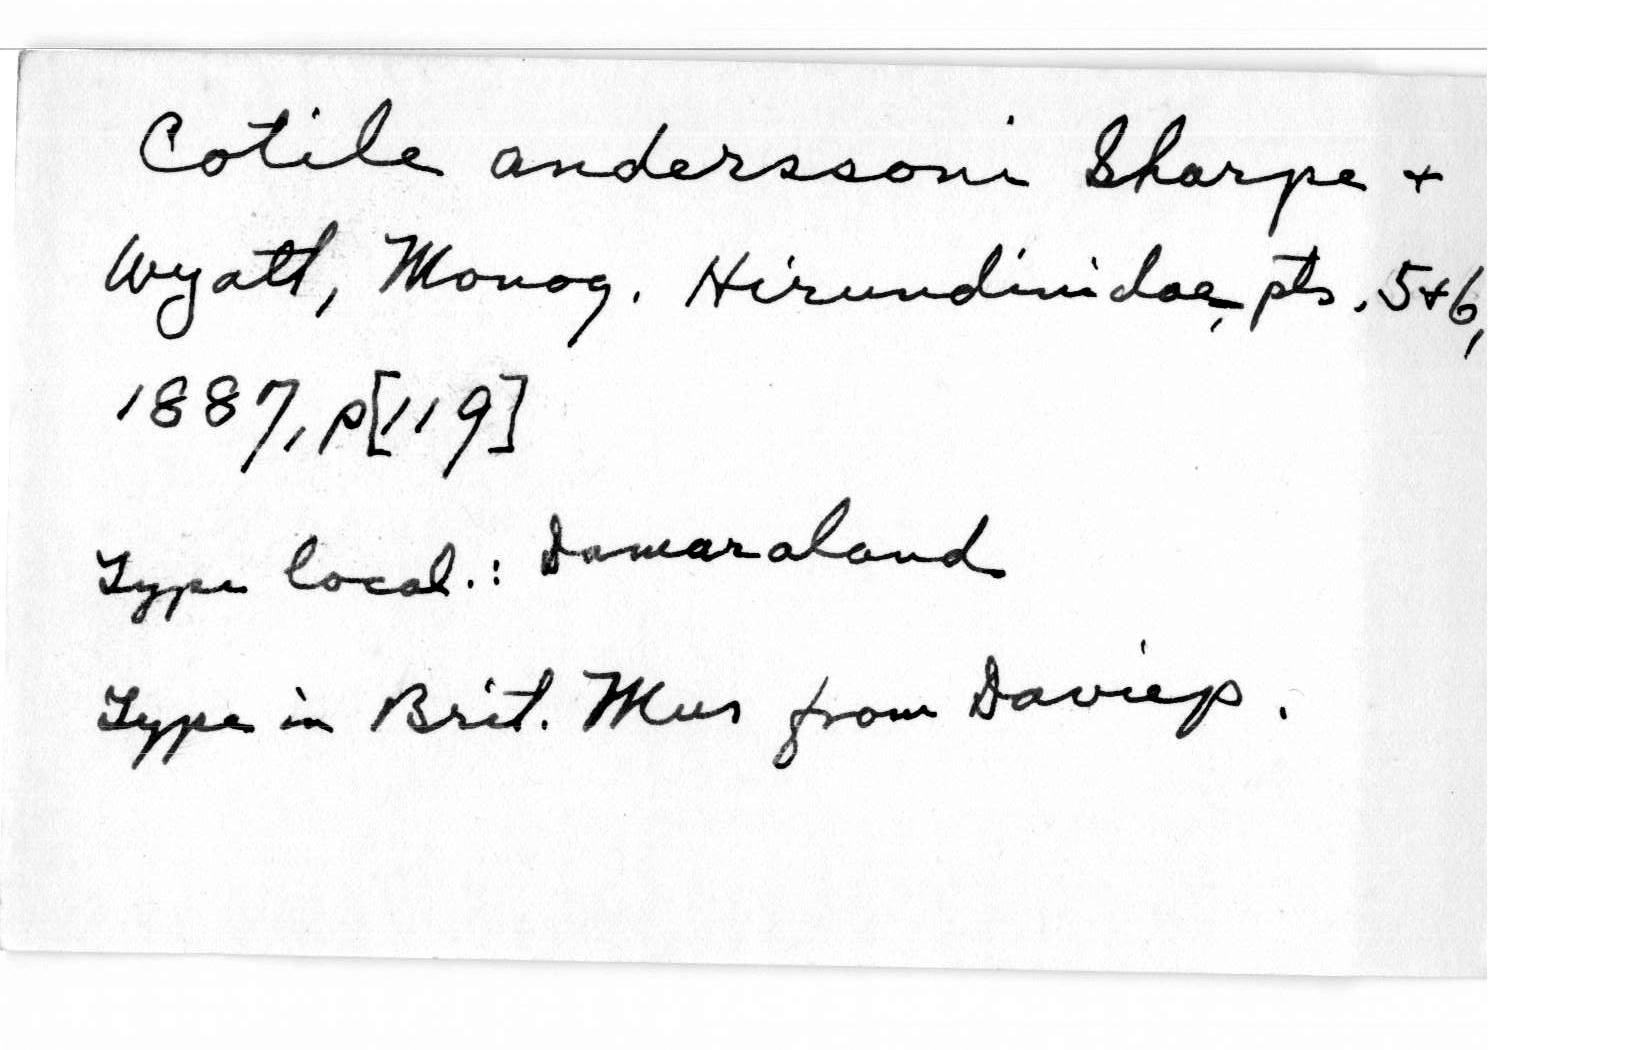 Cotile anderssoni Sharpe +
Wyatt, Monog. Hirundinidae, pts. 5+6,
1887, p[119]
Type local.: Damaraland
Type in Brit. Mus from Daviep.